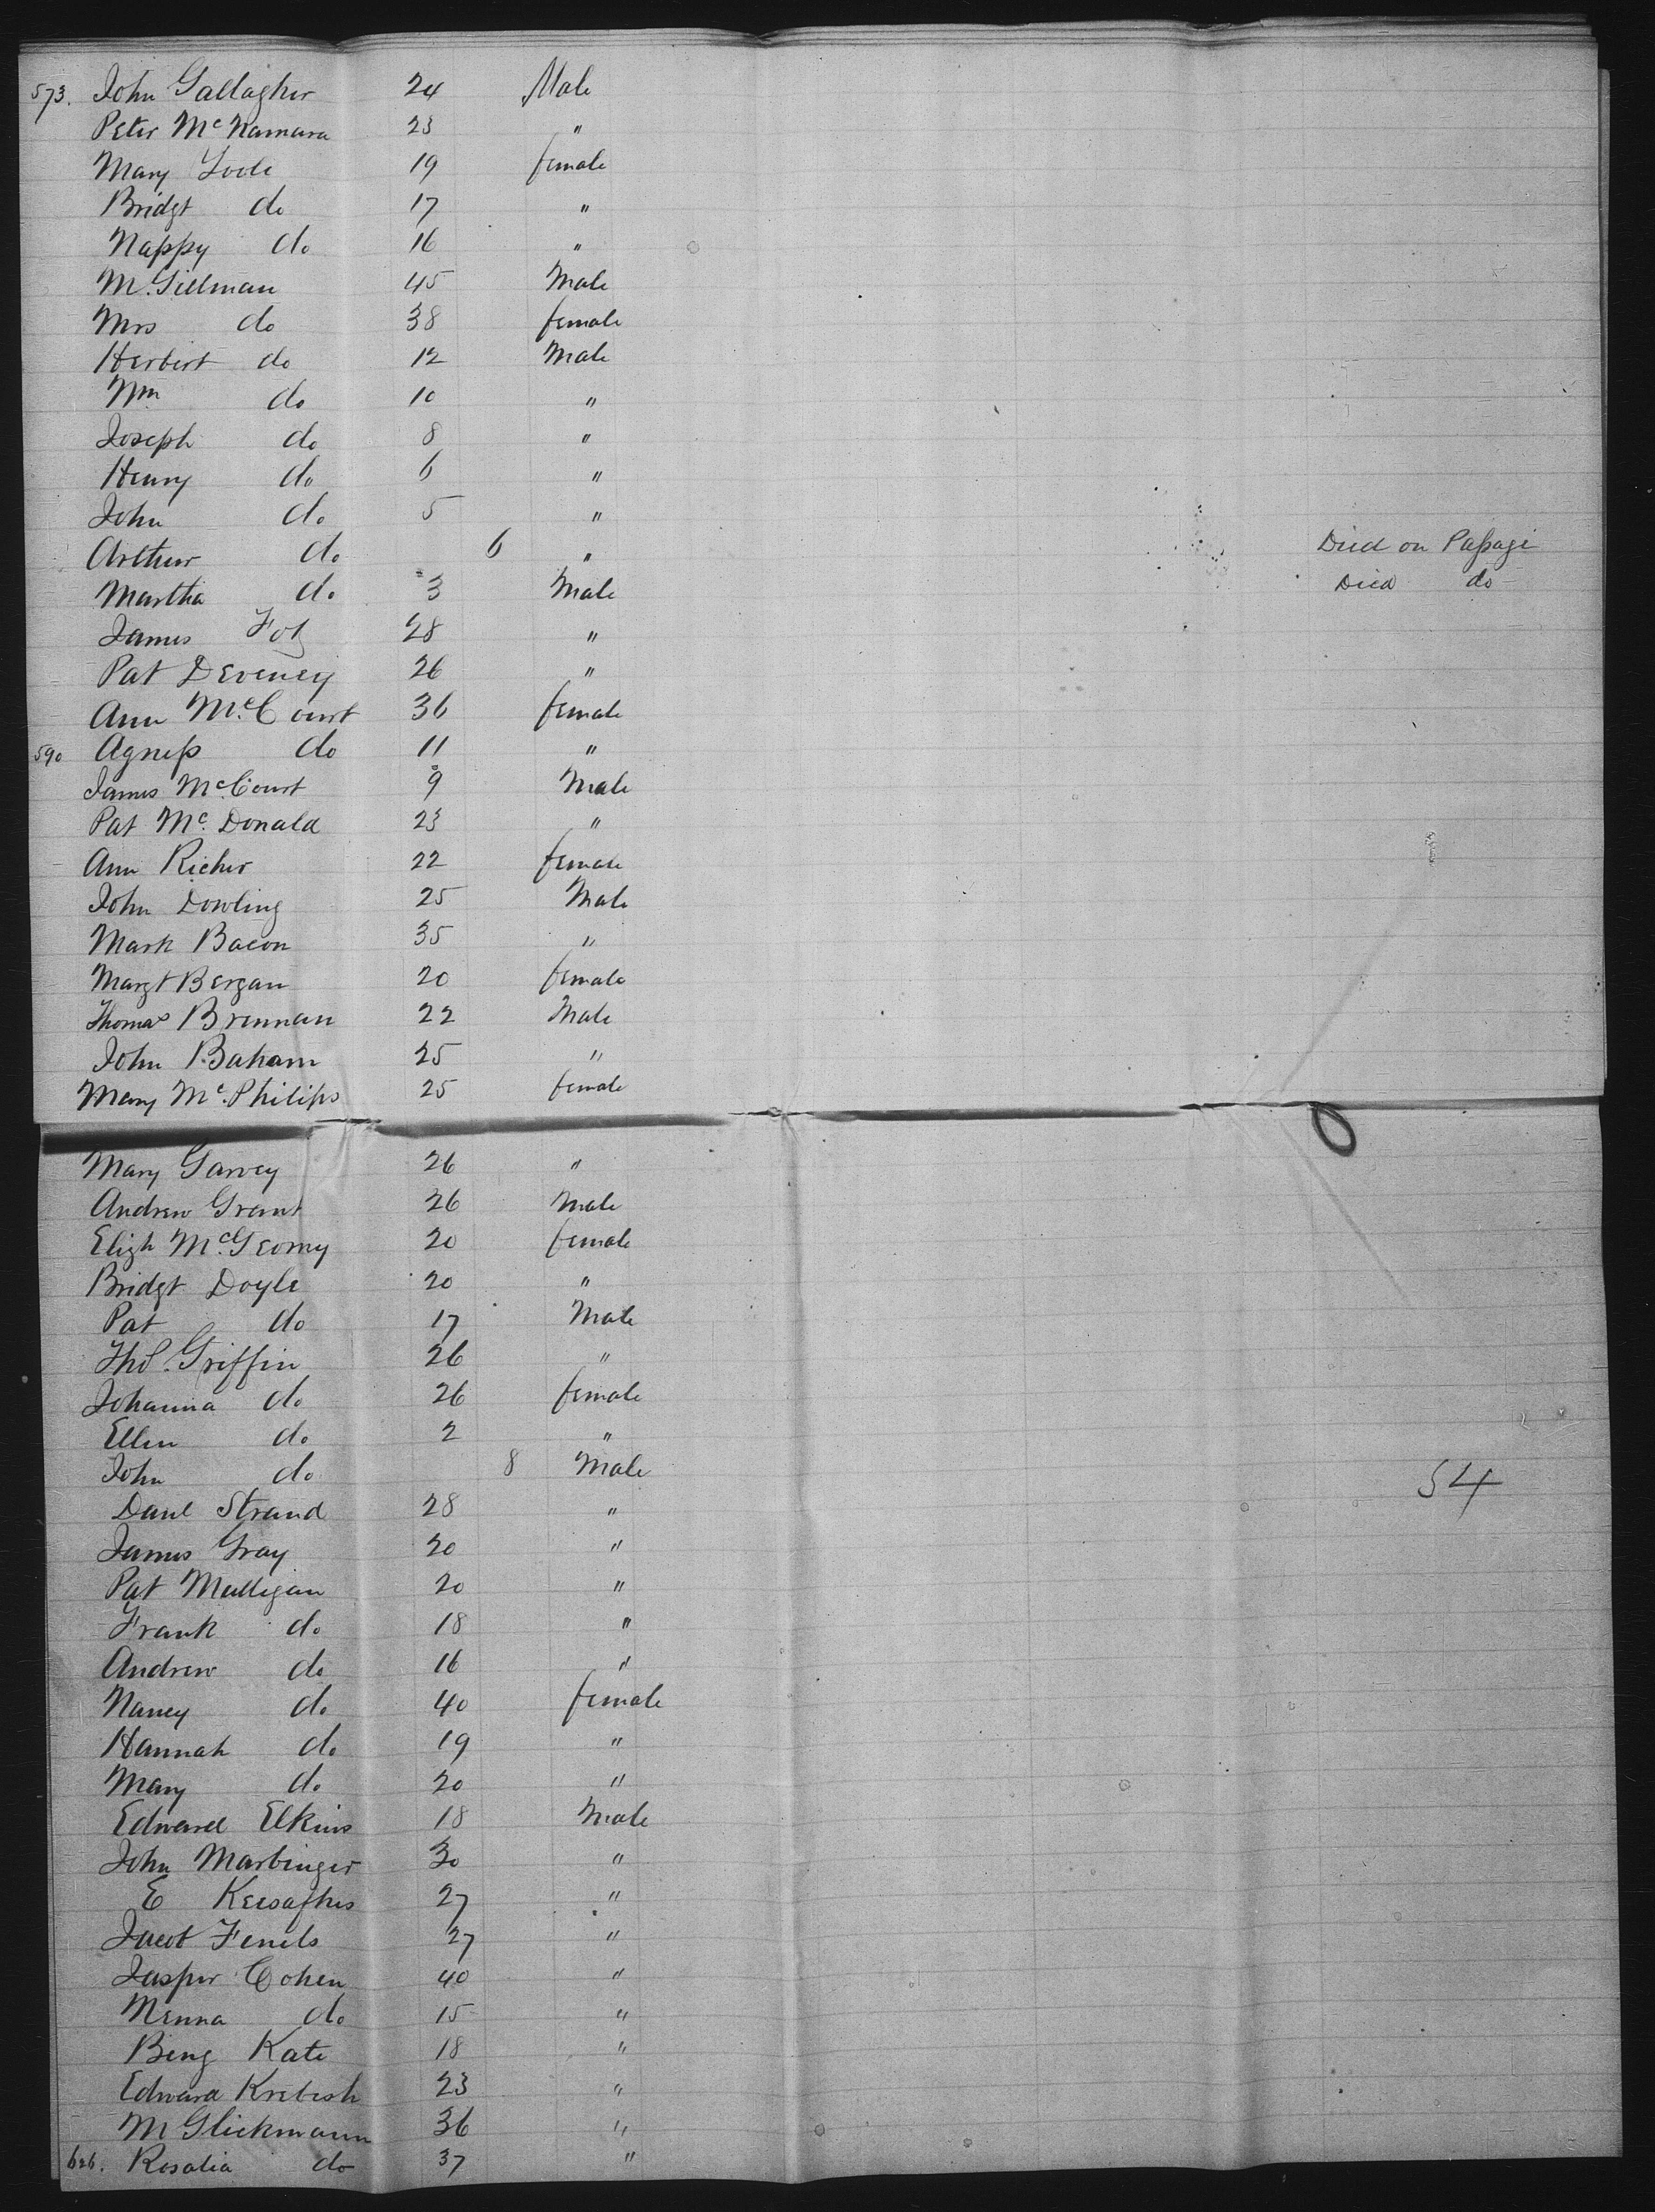 573. John Gallagher 24 Male
Peter McNamara 23 "
Mary Toole 19 female
Bridgt do 17 "
Nappy do 16 "
M. Gillman 45 Male
Mrs do 38 female
Herbert do 12 Male
Wm do 10 "
Joseph do 8 "
Henry do 6 "
John do 5 "
Arthur do 6 " Died on Passage
Martha do 3 Male Died do
James Foy 28 "
Pat Deveney 26 "
Ann McCourt 36 female
590 Agness do 11 "
James McCourt 9 Male
Pat McDonald 23 "
Ann Richer 22 female
John Dowling 25 Male
Mark Bacon 35 "
Margt Bergan 20 female
Thomas Brennan 22 Male
John Baham 25 "
Mary McPhilips 25 female
Mary Garvey 26 "
Andrew Grant 26 Male
Elizh McGeomy 20 female
Bridgt Doyle 20 "
Pat do 17 Male
Thos. Griffin 26 "
Johanna do 26 female
Ellen do 2 "
John do 8 Male
54
Danl Strand 28 "
James Gray 20 "
Pat Mulligan 20 "
Frank do 18 "
Andrew do 16 "
Nancy do 40 female
Hannah do 19 "
Mary do 20 "
Edward Elkins 18 Male
John Marbinger 30 "
E 27 "
Jacob Fenels 27 "
Jasper Cohen 40 "
Menna do 15 "
Beng Kate 18 "
Edward Krebesh 23 "
M Glickmann 36 "
626. Rosalia do 37 "